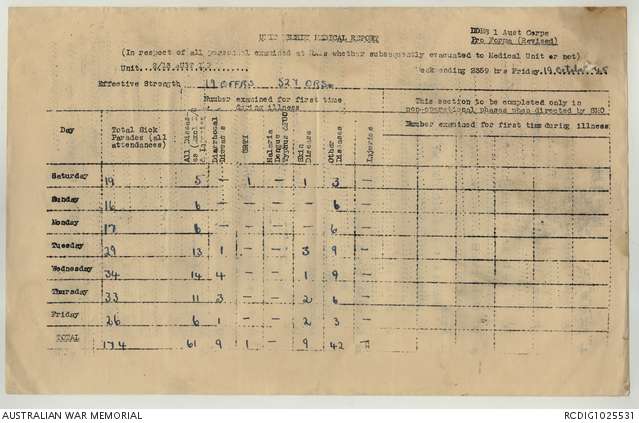 UNIT WEEKLY MEDICAL REPORT
DDMS 1 Aust Corps
Pro Forma (Revised)
(In respect of all personnel examined at RAPs whether subsequently evacuated to Medical Unit or not)
Unit
Week ending 2359 hrs Friday 19 October '45
Effective Strength 19 OFFRS 527 ORS
Number examined for first time during illness
This section to be completed only in non-operational phases when directed by SMO
Number examined for first time during illness
Day
Total Sick Parades (all attendances)
Diarrhoeal Diseases
Malaria Dengue Typhus & PUO
Skin Disease
Other Diseases
Injuries
Saturday 19 5 - 1 - 1 3 -
Sunday 16 6 - - - - 6 -
Monday 17 6 - - - - 6 -
Tuesday 29 13 1 - - 3 9 -
Wednesday 34 14 4 - - 1 9 -
Thursday 33 11 3 - - 2 6 -
Friday 26 6 1 - - 2 3 -
TOTAL 174 61 9 1 - 9 42
AUSTRALIAN WAR MEMORIAL
RCDIG1025531